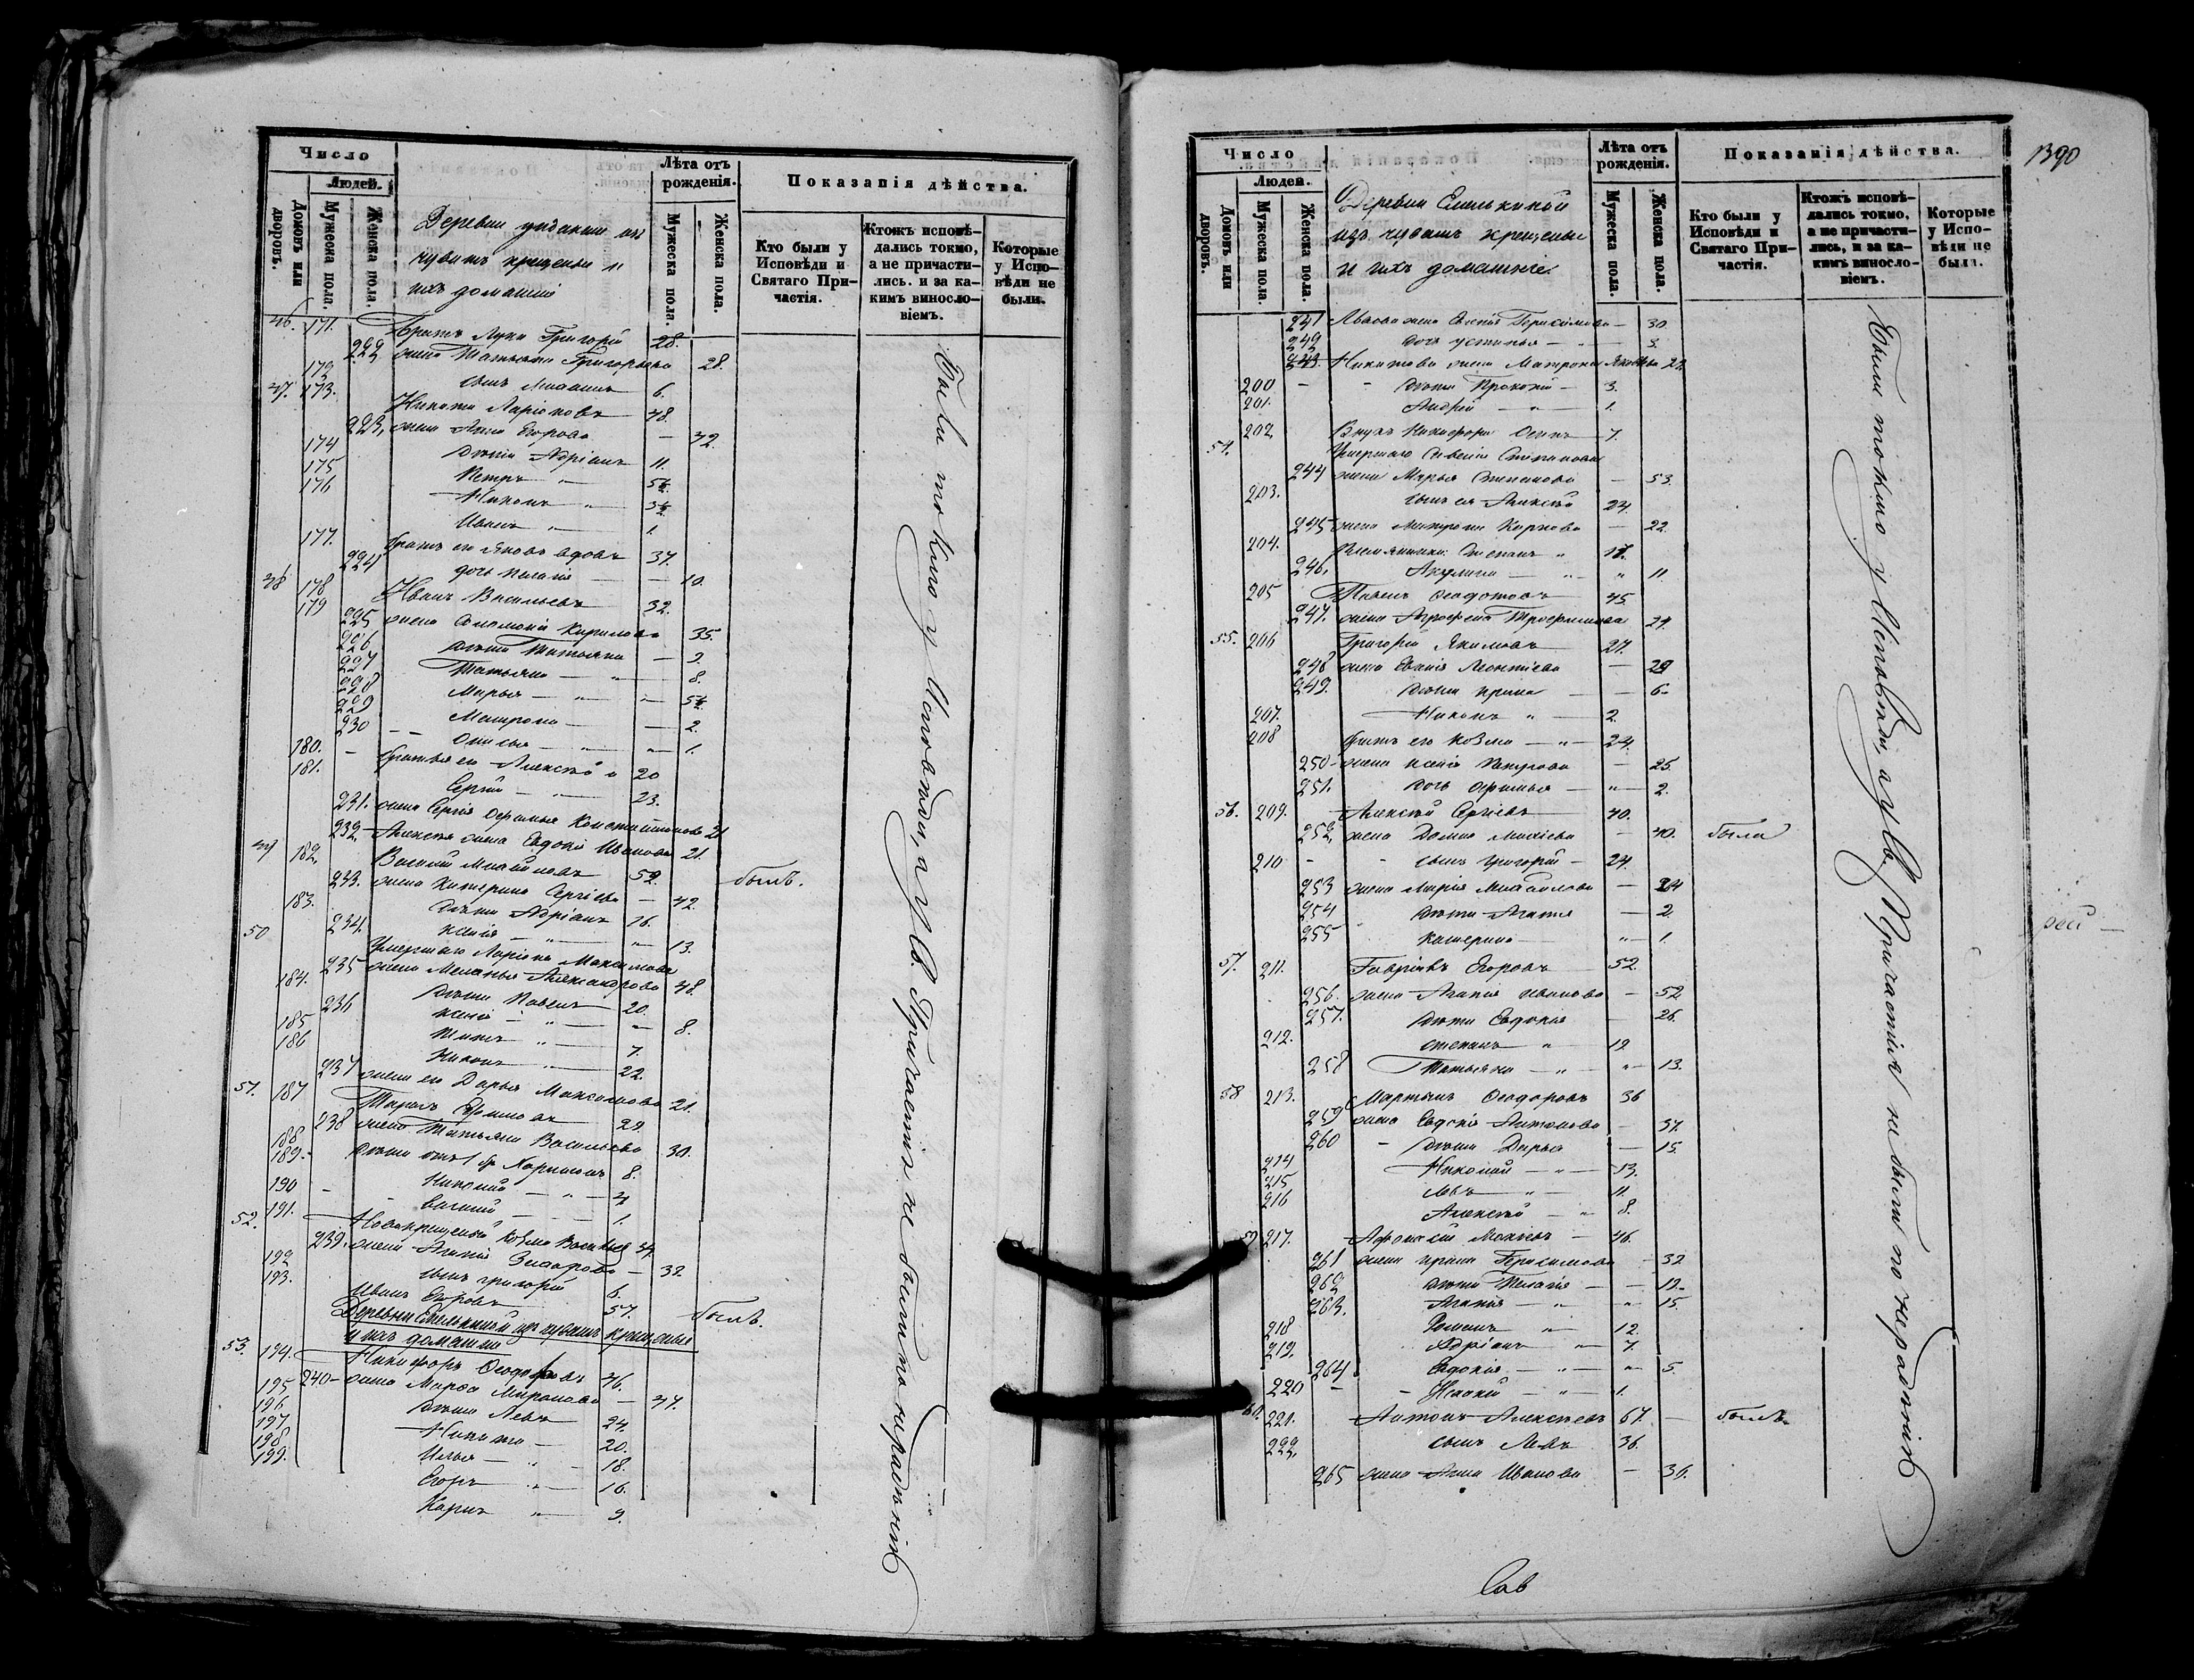 Число
Людей.
Домовъ или дворовъ.
Мужеска пола.
Женска пола.
Лѣта отъ рожденія.
Мужеска пола.
Женска пола.
Показанія дѣйства.
Кто были у Исповѣди и Святаго Причастія.
Ктожъ исповѣдались токмо, а не причастились. и за какимъ винословіемъ.
Которые у Исповѣди не были.
Деревни
чувашъ крещеные и
ихъ домашніе
46. 171. Братъ Луки Григорій 28.
222 жена Татьяна Григорьева 28.
172 сынъ Михаилъ 6.
47. 173. Никита Ларіоновъ 48.
223. жена Анна Егорова — 42.
174 дѣти Адріанъ 11.
175 Петръ „ 5½
176 Никонъ „ 3½
Иванъ „ 1.
177. братъ его Яковъ вдовъ 37.
224 дочь Пелагія — 10.
48 178 Иванъ Васильевъ 32.
179
225 жена Соломонія Кирилова 35.
226 дѣти Татьяна — 9.
227 Татьяна — „ 8.
228 Марья — „ 5½
229 Матрона — 2.
230 Онисья — „ 1.
180. братья его Алексѣй и 20
181. Сергій — „ 23.
231. жена Сергія Офимья Константинова 21
232 Алексѣя жена Евдокія Иванова 21.
49 182. Василій Михайловъ 52. былъ.
233. жена Катерина Сергіева — 42.
183. дѣти Адріанъ 16.
234. Ксенія — „ 13.
50 Умершаго Ларіона Максимова
235 жена Меланья Александрова 48.
184. дѣти Павелъ 20.
236 Ксенія — „ 8.
185 „ 7.
186 Никонъ 22.
237 жена его Дарья Максимова 21.
51. 187 Тарасъ Ефимовъ 29.
238 жена Татьяна Васильева 30.
188 дѣти отъ 1 бр 8.
189. Николай — „ 4
190 Василій — 1.
52. 191. Новокрещеный Козма Васильевъ 34.
239. жена Агапія — 32.
192 сынъ Григорій 6.
193. Иванъ Егоровъ 57. былъ.
Деревни Емелькиной изъ чувашъ крещеные
и ихъ домашніе
53. 194. Никифоръ Ѳеодоровъ 46.
240 жена Марѳа Миронова — 47.
195 дѣти Левъ 24.
196 Никита — 20.
197 Илья — „ 18.
198 Егоръ „ 16.
199. Карпъ „ 9.
Были токмо у Исповѣди, а у Св. Причастія не были по нерадѣнію
Число
Людей.
Домовъ или дворовъ.
Мужеска пола.
Женска пола.
Лѣта отъ рожденія.
Мужеска пола.
Женска пола.
Показанія дѣйства.
Кто были у Исповѣди и Святаго Причастія.
Ктожъ исповѣдались токмо, а не причастились, и за какимъ винословіемъ.
Которые у Исповѣди не были.
1390
Деревни Емелькиной
изъ чувашъ крещеные
и ихъ домашніе.
241 Львова жена Евгенія Герасимова — 30.
242 дочь Устинья — 3.
243. Никитова жена Матрона Яковлева 22.
200 дѣти Прокопій — 3.
201. Андрей — „ 1.
202. Внукъ Никифора Осипъ — 7.
54. Умершаго Савелія Степанова
244 жена Марья Степанова — 53.
203. сынъ ея Алексѣй 24.
245 жена Матрона Карпова — 22.
204. Племянники: Степанъ „ 17.
246. Акулина — „ 11
205 Павелъ Ѳеодотовъ 45.
247. жена Агрофена Трофимова 27.
55. 206 Григорій Якимовъ 27.
248 жена Евгенія Леонтіева — 29
249. дѣти Ирина — 6.
207. Никонъ „ 2.
208 братъ его Козма — „ 24.
250 жена Ксенія Петрова — 25.
251. дочь Офимья — „ 2.
56. 209. Алексѣй Сергѣевъ 40.
252 жена Домна — 40. была
210 сынъ Григорій — 24.
253 жена Марія Михайлова — 24
254 дѣти Агапія — 2
255 Катерина — „ 1.
57. 211. Гавріилъ Егоровъ 52.
256. жена Агапія Иванова — 52
257. дѣти Евдокія — 26.
212. Степанъ „ 19
258 Татьяна — „ 13.
58 213. Мартынъ Ѳеодоровъ 36
259 жена Евдокія Антонова — 37.
260 дѣти Дарья — 15.
214 Николай — „ 13.
215 Левъ — „ 11.
216 Алексѣй — „ 8.
59 217. Афонасій — 46.
261 жена Ирина Герасимова — 32
262 дѣти Пелагія — 19.
263. Агапія — „ 15.
218 Романъ „ 12.
219. Адріанъ „ 7.
264 Евдокія — „ 5.
220 — „ 1.
60. 221. Антонъ Алексѣевъ 67. — былъ.
222. сынъ Левъ 36.
265 жена Анна Иванова — 36.
Были токмо у Исповѣди, а у Св. Причастія не были по нерадѣнію
рей
Сав